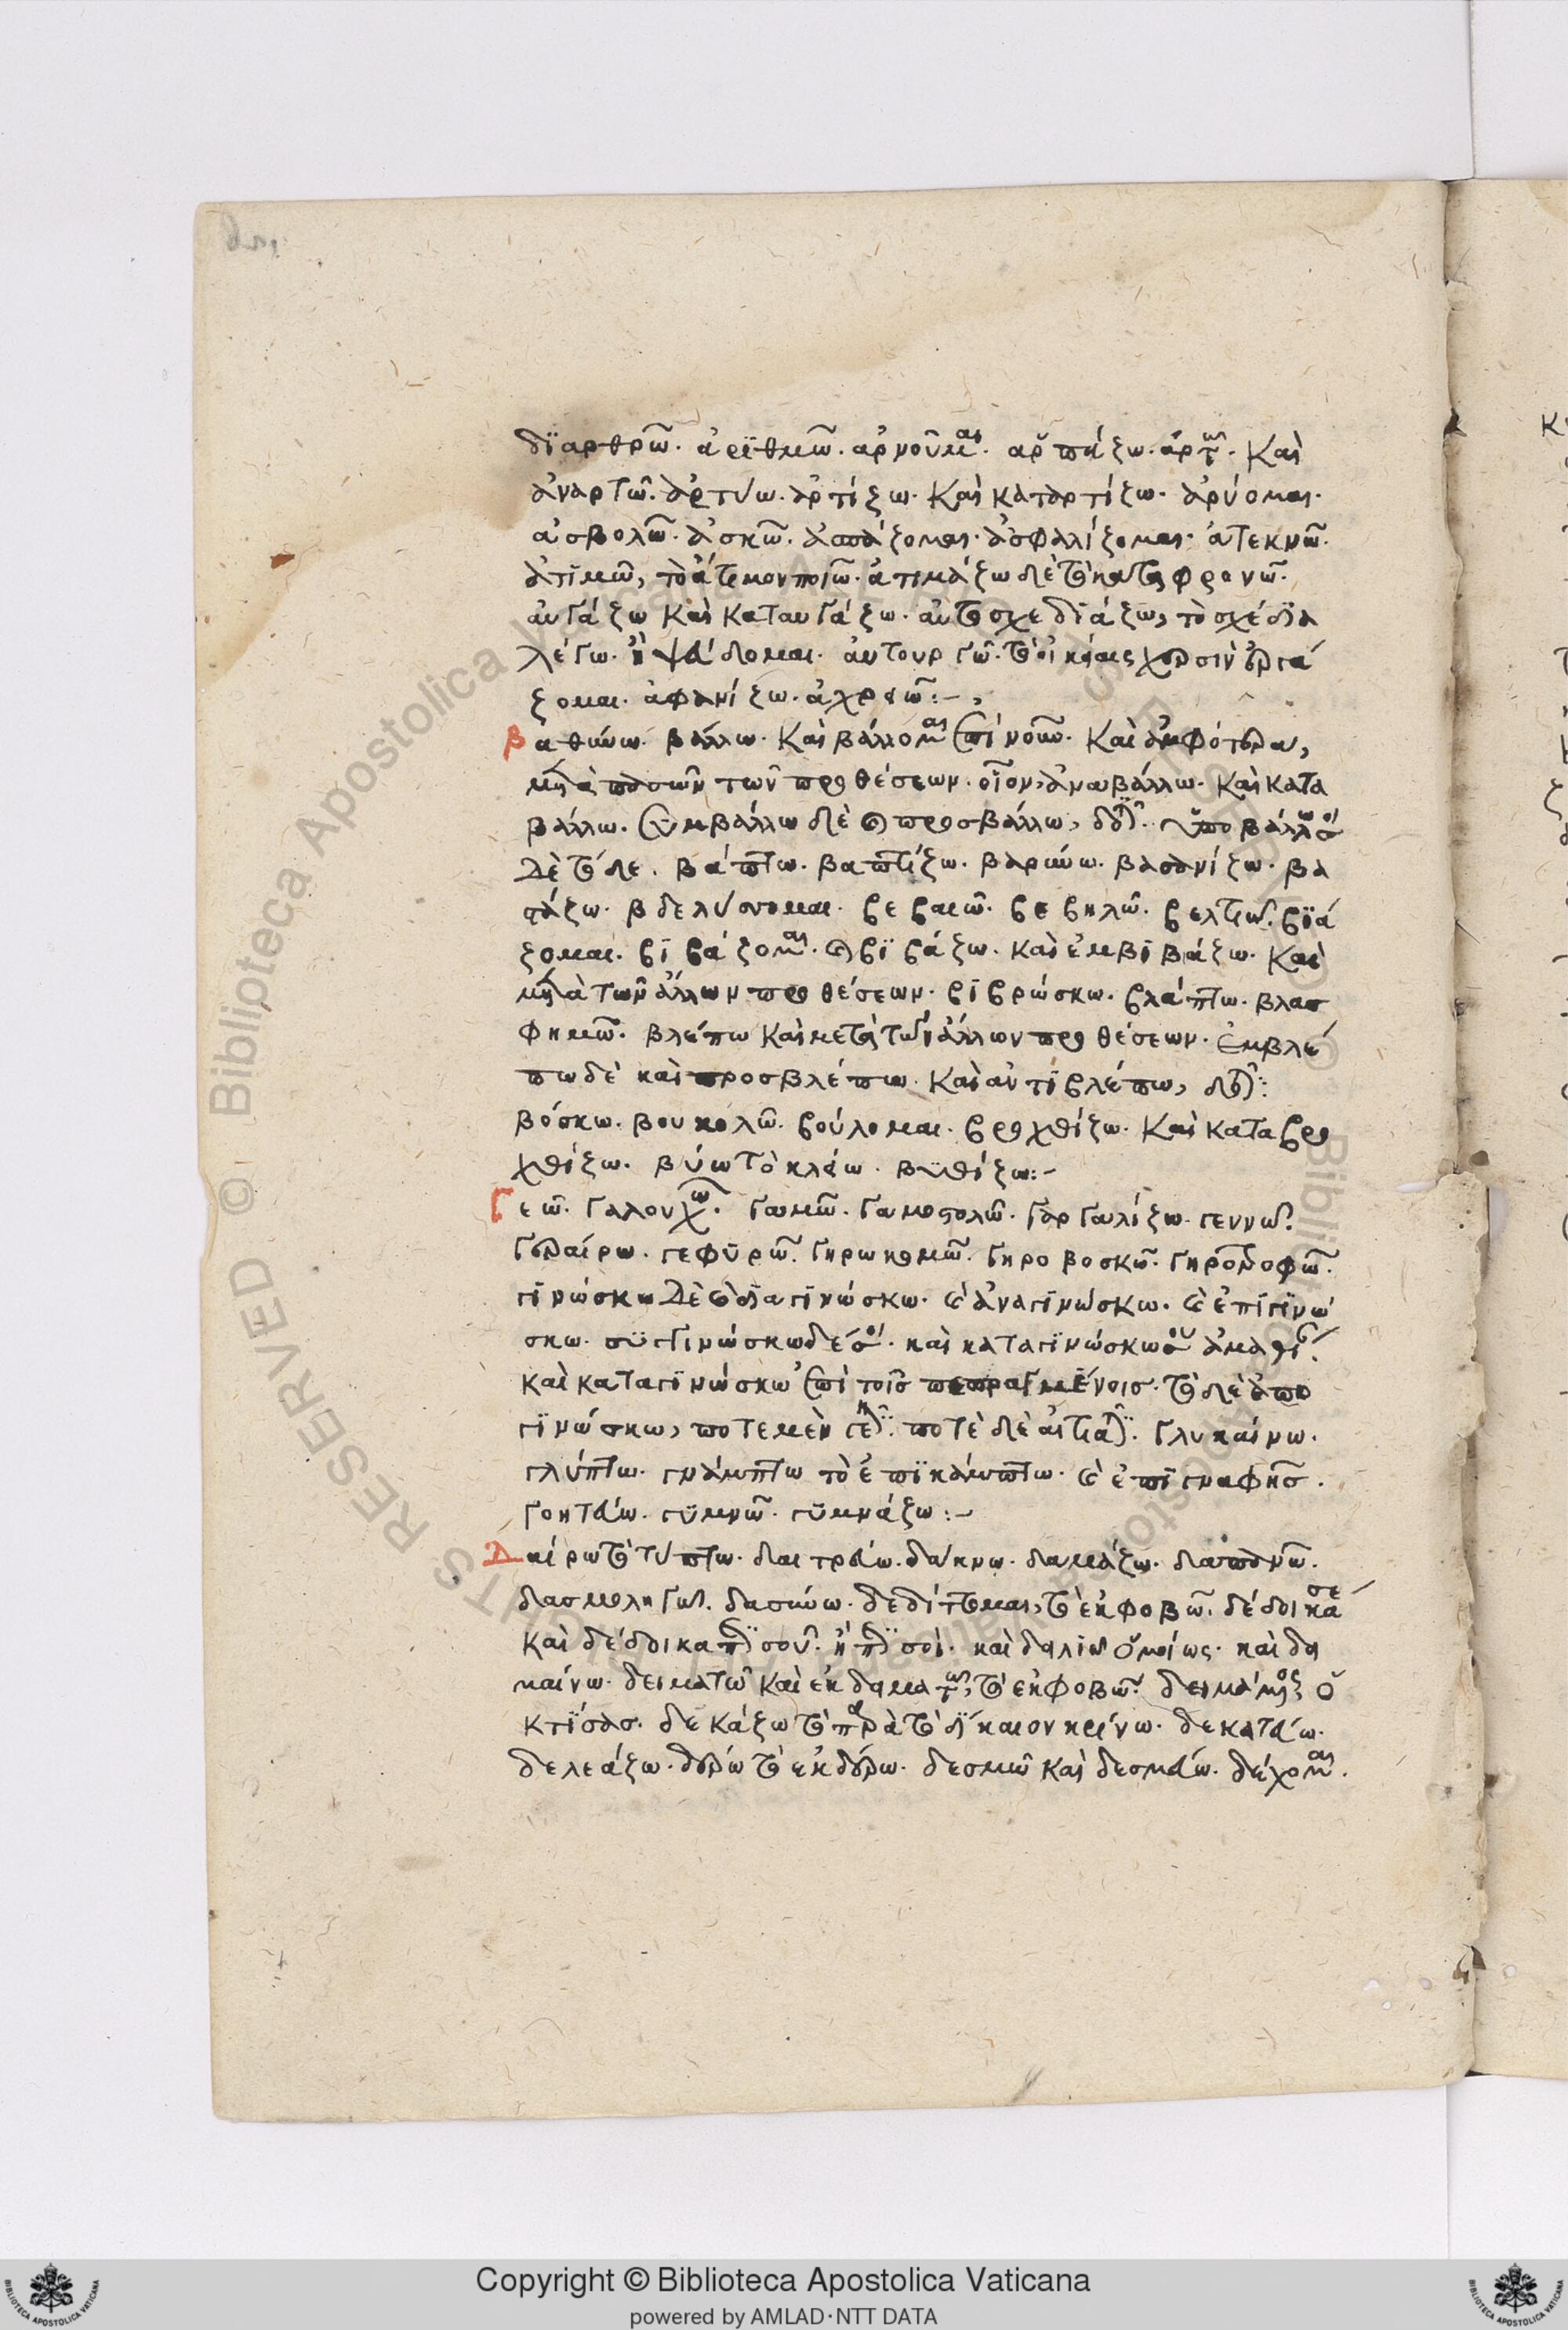 διαρθρῶ. ἀριθμῶ. ἀρνοῦμαι. ἁρπάζω. ἀρτῶ. Καὶ
ἀναρτῶ. ἀρτύω. ἀρτίζω. Καὶ καταρτίζω. ἀρύομαι.
ἀσβολῶ. ἀσκῶ. ἀσπάζομαι. ἀσφαλίζομαι. ἀτεκνῶ.
ἀτιμῶ, τὸ ἄτιμον ποιῶ. ἀτιμάζω δὲ τὸ καταφρονῶ.
αὐγάζω Καὶ καταυγάζω. αὐτοσχεδιάζω, τὸ σχέδια
λέγω. ἢ ψεύδομαι. αὐτουργῶ. τὸ οἰκείαις χερσὶν ἐργά
ζομαι. ἀφανίζω. ἀχρειῶ:-
βαθύνω. βάλλω. Καὶ βάλλομαι ἐπὶ νοῦν. Καὶ ἀμφότερα,
μετὰ πασῶν τῶν προθέσεων. οἷον, ἀναβάλλω. Καὶ κατα
βάλλω. συμβάλλω δὲ καὶ προσβάλλω, δοτικῇ. ὑποβάλλω σοι
δὲ τόδε. βάπτω. βαπτίζω. βαρύνω. βασανίζω. βα
στάζω. βδελύσσομαι. βεβαιῶ. βεβηλῶ. βελτιῶ. βιά
ζομαι. βιβάζομαι. καὶ βιβάζω. καὶ ἐμβιβάζω. Καὶ
μετὰ τῶν ἄλλων προθέσεων. βιβρώσκω. βλάπτω. βλασ
φημῶ. βλέπω Καὶ μετὰ τῶν ἄλλων προθέσεων. ἐμβλέ
πω δὲ καὶ προσβλέπω. Καὶ ἀντιβλέπω, δοτικῇ:
βόσκω. βουκολῶ. βούλομαι. βροχθίζω. Καὶ καταβρο
χθίζω. βύω τὸ κλείω. βυθίζω:-
Γεῶ. γαλουχῶ. γαμῶ. γαμοστολῶ. γαργαλίζω. γεννῶ.
γεραίρω. γεφυρῶ. γηρωκομῶ. γηροβοσκῶ. γηροτροφῶ.
γινώσκω δὲ καὶ διαγινώσκω. καὶ ἀναγινώσκω. καὶ ἐπιγινώ
σκω. συγγινώσκω δέ σοι. καὶ καταγινώσκω σου ἀμαθίαν.
καὶ καταγινώσκω ἐπὶ τοῖς πεπραγμένοις. τὸ δὲ ἀπο
γινώσκω, ποτὲ μὲν γενικῇ: ποτὲ δὲ αἰτιατικῇ. γλυκαίνω.
γλύπτω. γνάμπτω τὸ ἐπικάμπτω. καὶ ἐπιγναφῆς.
γοητεύω. γυμνῶ. γυμνάζω:-
Δαίρω τὸ τύπτω. διαιτρεύω. δάκνω. δαμάζω. δαπανῶ.
δασμολογῶ. δασκύω. δεδίττομαι, τὸ ἐκφοβῶ. δέδοικά σε
Καὶ δέδοικα περὶ σοῦ. ἢ περὶ σοί. καὶ δειλιῶ ὁμοίως. καὶ δει
μαίνω. δειματῶ Καὶ ἐκδειματῶ, τὸ ἐκφοβῶ. δειμάμενος ὁ
κτίσας. δεκάζω τὸ παρὰ τὸ δίκαιον κρίνω. δεκατεύω.
δελεάζω. δέρω τὸ ἐκδέρω. δεσμῶ Καὶ δεσμεύω. δέχομαι.